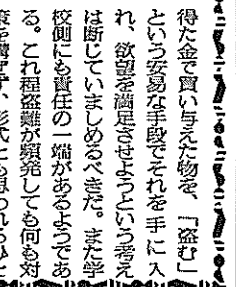 得た金で買い与えた物を、「盗む」
という安易な手段でそれを手に入
れ、欲望を満足させようという考え
は断じていましめるべきだ。また学
校側にも責任の一端があるようであ
る。これ程盗難が頻発しても何も対
策を講ぜず、形式とも思われるひと